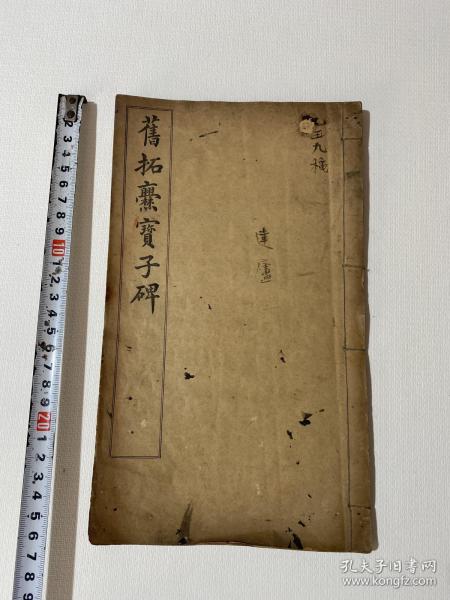 舊拓爨寶子碑
五九種
達廬
孔夫子旧书网
www.kongfz.com
1 2 3 4 5 6 7 8 9 10 1 2 3 4 5 6 7 8 9 20 1 2 3 4 5 6 7 8 9